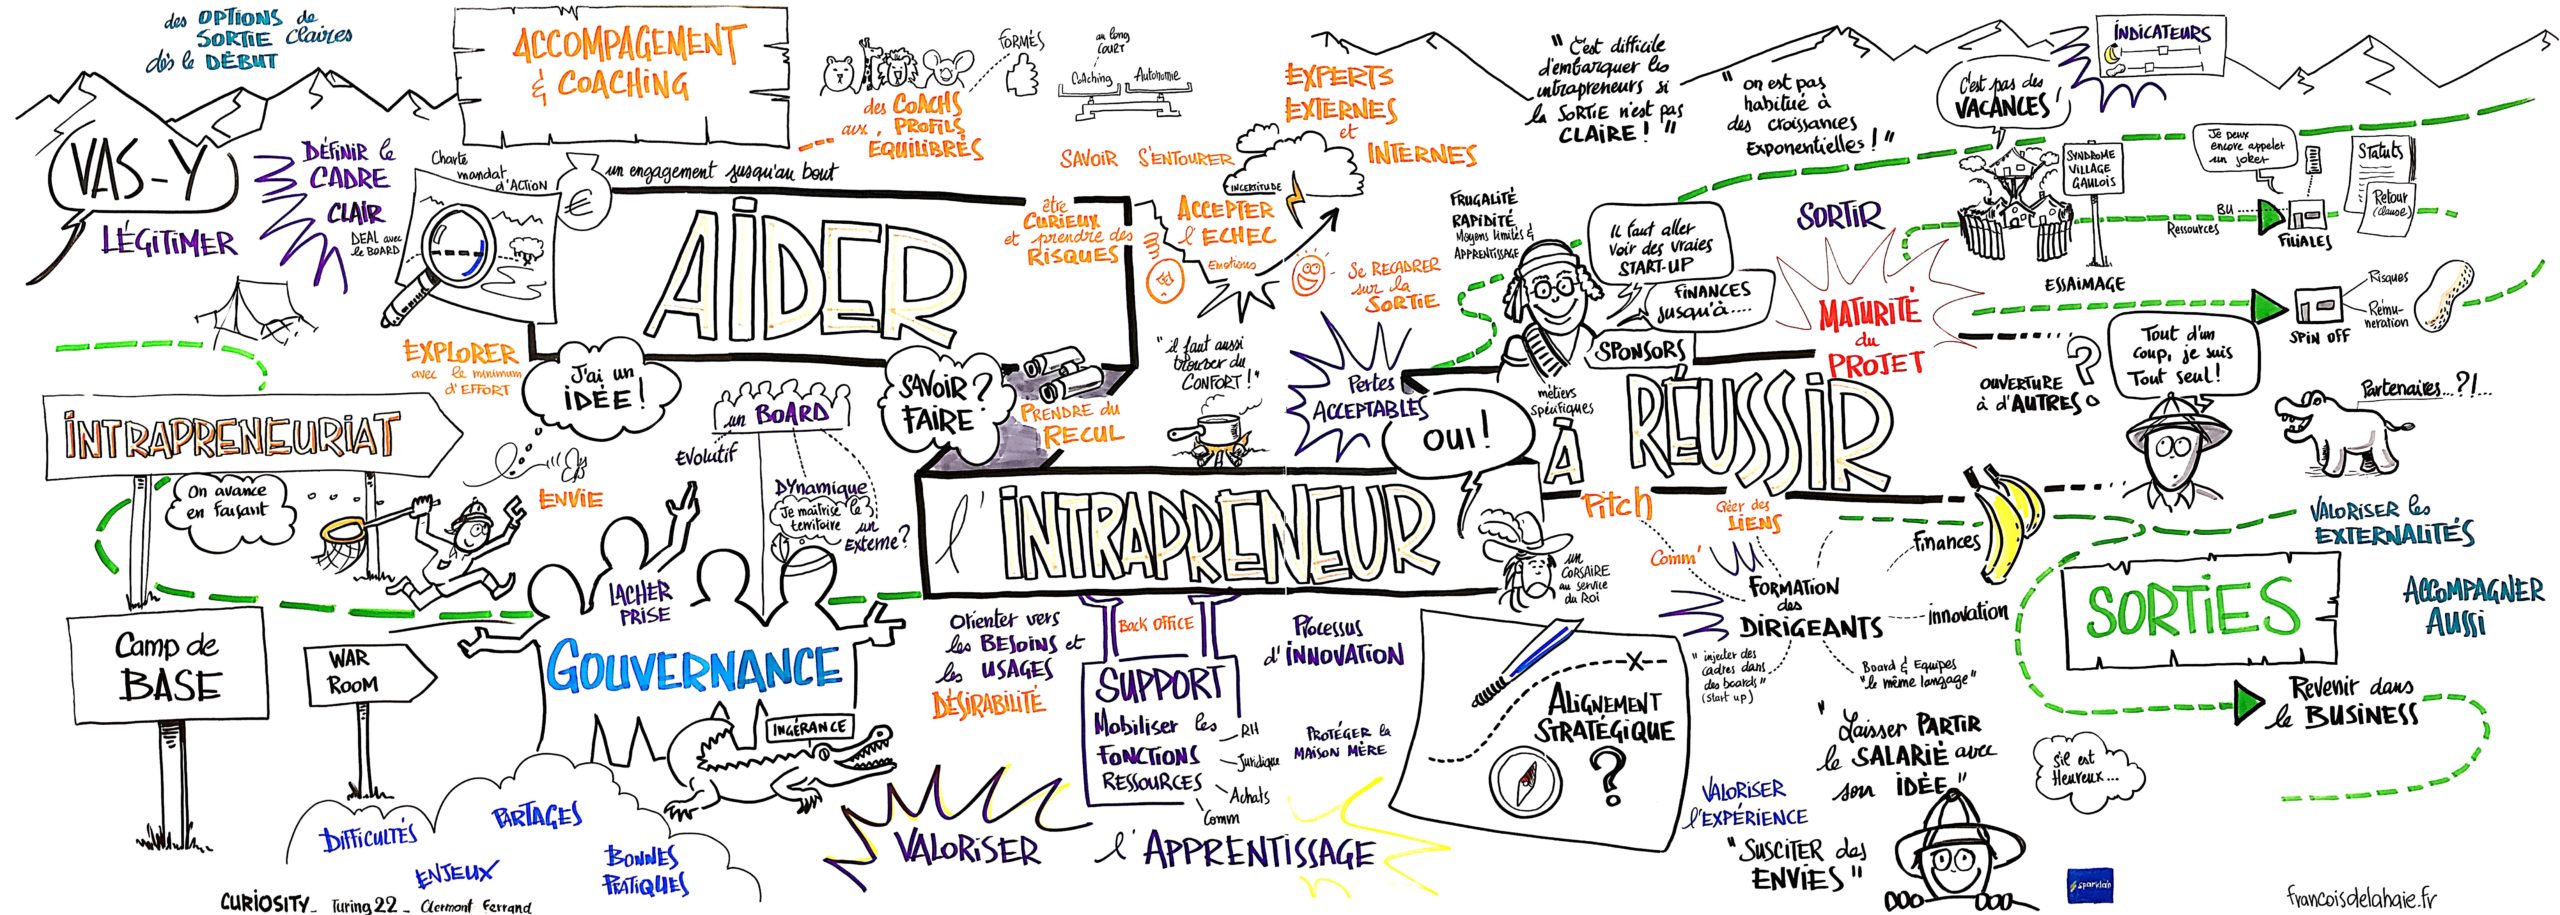 des OPTIONS de
SORTIE claires
dès le DÉBUT
VAS-Y
LÉGITIMER
DÉFINIR le
CADRE
CLAIR
DEAL avec
le BOARD
Charte
mandat
d'ACTION
ACCOMPAGEMENT
& COACHING
€
un engagement jusqu'au bout
des COACHS
aux PROFILS
ÉQUILIBRÉS
FORMÉS
au long
COURT
Coaching
Autonomie
EXPERTS
EXTERNES
et
INTERNES
SAVOIR S'ENTOURER
INCERTITUDE
être
CURIEUX
et prendre des
RISQUES
ACCEPTER
l'ECHEC
Emotions
Se RECADRER
sur la
SORTIE
"C'est difficile
d'embarquer les
intrapreneurs si
la SORTIE n'est pas
CLAIRE!"
"on est pas
habitué à
des croissances
Exponentielles!"
C'est pas des
VACANCES!
INDICATEURS
SYNDROME
VILLAGE
GAULOIS
ESSAIMAGE
Je peux
encore appeler
un joker
BU
Ressources
FILIALES
Statuts
Retour
(clause)
Risques
Rému-
neration
SPIN OFF
SORTIR
MATURITÉ
du
PROJET
FRUGALITÉ
RAPIDITÉ
Moyens limités &
APPRENTISSAGE
Il faut aller
voir des vraies
START-UP
FINANCES
jusqu'à....
SPONSORS
métiers
spécifiques
AIDER
EXPLORER
avec le minimum
d'EFFORT
J'ai un
IDÉE!
un BOARD
Evolutif
DYnamique
Je maîtrise le
territoire
un
Externe?
SAVOIR?
FAIRE
PRENDRE du
RECUL
"il faut aussi
trouver du
CONFORT!"
Pertes
ACCEPTABLES
OUI!
l'INTRAPRENEUR
À RÉUSSIR
un
CORSAIRE
au service
du Roi
OUVERTURE
à d'AUTRES?
Tout d'un
coup, je suis
Tout seul!
Partenaires...?!...
INTRAPRENEURIAT
On avance
en faisant
ENVIE
Camp de
BASE
WAR
ROOM
LACHER
PRISE
GOUVERNANCE
INGÉRANCE
Orienter vers
les BESOINS et
les USAGES
DÉSIRABILITÉ
BACK OFFICE
SUPPORT
Mobiliser les
FONCTIONS
RESSOURCES
RH
Juridique
Achats
Comm
Processus
d'INNOVATION
PROTÉGER la
MAISON MÈRE
ALIGNEMENT
STRATÉGIQUE
?
Pitch
Créer des
LIENS
Comm'
FORMATION
des
DIRIGEANTS
Finances
innovation
"injecter des
cadres dans
des boards"
(start up)
Board & Equipes
"le même langage"
VALORISER les
EXTERNALITÉS
ACCOMPAGNER
AUSSI
SORTIES
Revenir dans
le BUSINESS
S'il est
Heureux...
"Laisser PARTIR
le SALARIÉ avec
son IDÉE"
VALORISER
l'EXPÉRIENCE
"SUSCITER des
ENVIES"
DIFFICULTÉS
PARTAGES
ENJEUX
BONNES
PRATIQUES
VALORISER l'APPRENTISSAGE
CURIOSITY_ Turing 22 _ Clermont Ferrand
francoisdelahaie.fr